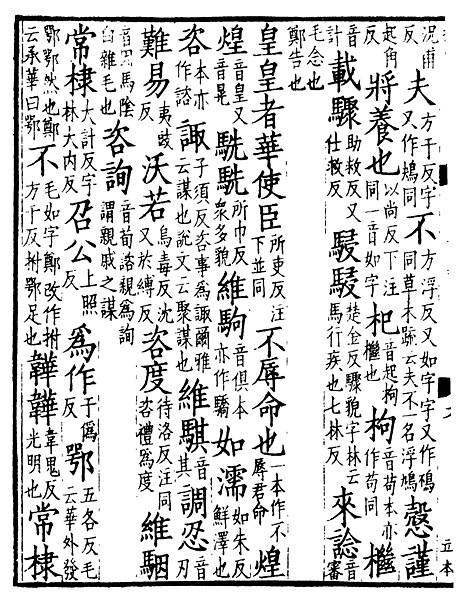 況甫反夫方于反字又作鳺同不方浮反又如字字又作鳪同草木疏云夫不一名浮鳩愨謹
起角反將養也以尚反下注同一音如字杞音起枸檵也枸音苟本亦作苟同檵
音計載驟助救反又仕救反駸駸楚金反驟貌字林云馬行疾也七林反來諗音審
毛念也鄭告也
皇皇者華使臣所吏反注下並同不辱命也一本作不辱君命煌
煌音皇又音晃駪駪所巾反衆多貌維駒音俱本亦作驕如濡如朱反鮮澤也
咨本亦作諮諏子須反咨事爲諏爾雅云謀也說文云聚謀也維騏音其調忍音刃
難易夷豉反沃若烏毒反沈又於縛反咨度待洛反注同咨禮爲度維駰
音因馬陰白雜毛也咨詢音荀諮親爲詢謂親戚之謀
常棣大計反字林大内反召公上照反爲作于僞反鄂五各反毛云華外發
鄂鄂然也鄭云承華曰鄂不毛如字鄭改作拊方于反拊鄂足也韡韡韋鬼反光明也常棣